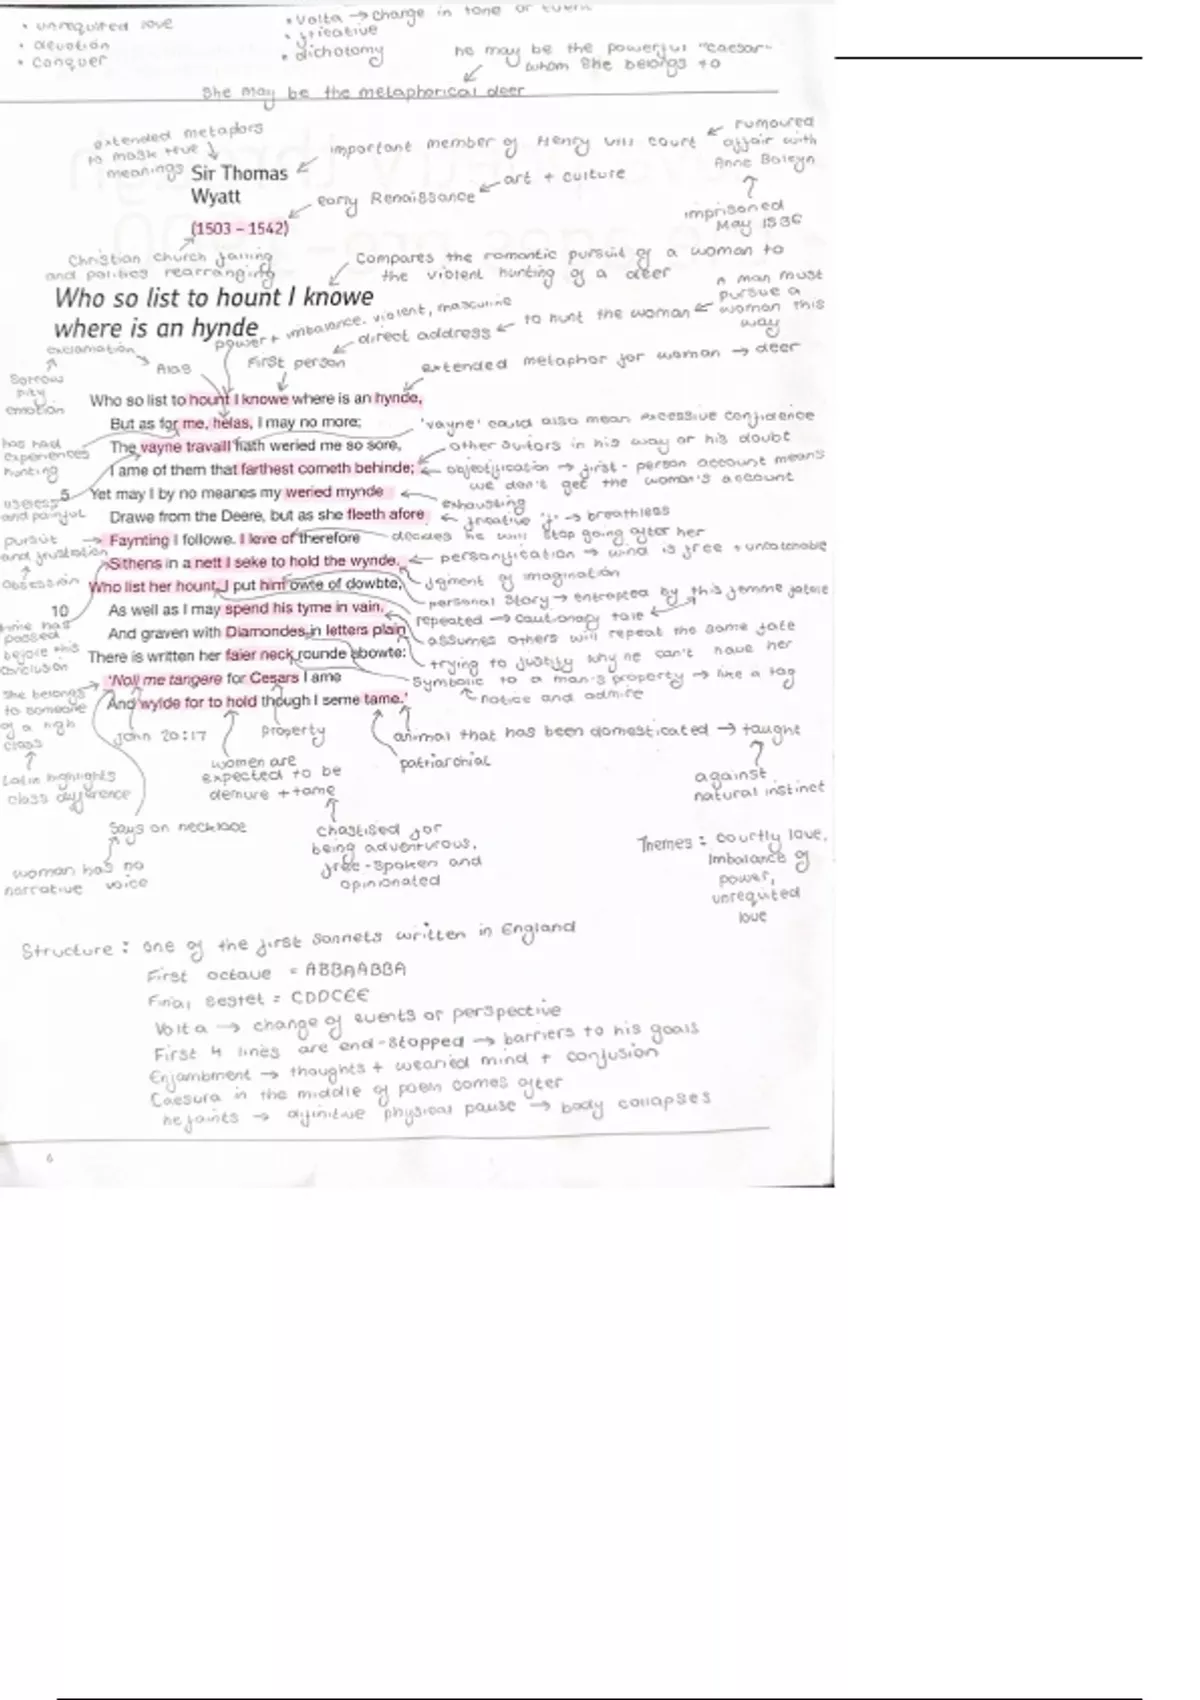 • unrequited love
• devotion
• conquer
• Volta → change in tone or event
• fricative
• dichotomy
he may be the powerful "Caesar"
whom she belongs to
She may be the metaphorical deer
extended metaphors
to mask true
meanings
Sir Thomas
Wyatt
(1503 – 1542)
important member of Henry VIII court
rumoured
affair with
Anne Boleyn
imprisoned
May 1536
early Renaissance
art + culture
Christian church falling
and politics rearranging
Compares the romantic pursuit of a woman to
the violent hunting of a deer
Who so list to hount I knowe
where is an hynde
power + imbalance, violent, masculine
direct address
to hunt the woman
A man must
pursue a
woman this
way
exclamation
Alas
First person
extended metaphor for woman → deer
Sorrow
pity
emotion
Who so list to hount I knowe where is an hynde,
But as for me, helas, I may no more;
The vayne travaill hath weried me so sore,
I ame of them that farthest cometh behinde;
5 Yet may I by no meanes my weried mynde
Drawe from the Deere, but as she fleeth afore
Faynting I followe. I leve of therefore
Sithens in a nett I seke to hold the wynde.
Who list her hount, I put him owte of dowbte,
10 As well as I may spend his tyme in vain.
And graven with Diamondes in letters plain
There is written her faier neck rounde abowte:
'Noli me tangere for Cesars I ame
And wylde for to hold though I seme tame.'
'vayne' could also mean excessive confidence
other suitors in his way or his doubt
objectification → first-person account means
we don't get the woman's account
exhausting
fricative 'f' → breathless
decides he will stop going after her
personification → wind is free + uncatchable
figment of imagination
personal story → entrapped by this femme fatale
repeated → cautionary tale
assumes others will repeat the same fate
trying to justify why he can't have her
Symbolic to a man's property → like a tag
notice and admire
has had
experiences
hunting
useless
and painful
pursuit
and frustration
obsession
time has
passed
before this
conclusion
She belongs
to someone
of a high
class
Latin highlights
class difference
John 20:17
property
women are
expected to be
demure + tame
animal that has been domesticated → taught
patriarchial
against
natural instinct
Says on necklace
woman has no
narrative voice
chastised for
being adventurous,
free-spoken and
opinionated
Themes: courtly love,
Imbalance of
power,
unrequited
love
Structure: one of the first sonnets written in England
First octave = ABBAABBA
Final sestet = CDDCEE
Volta → change of events or perspective
First 4 lines are end-stopped → barriers to his goals
Enjambment → thoughts + wearied mind + confusion
Caesura in the middle of poem comes after
he faints → definitive physical pause → body collapses
6